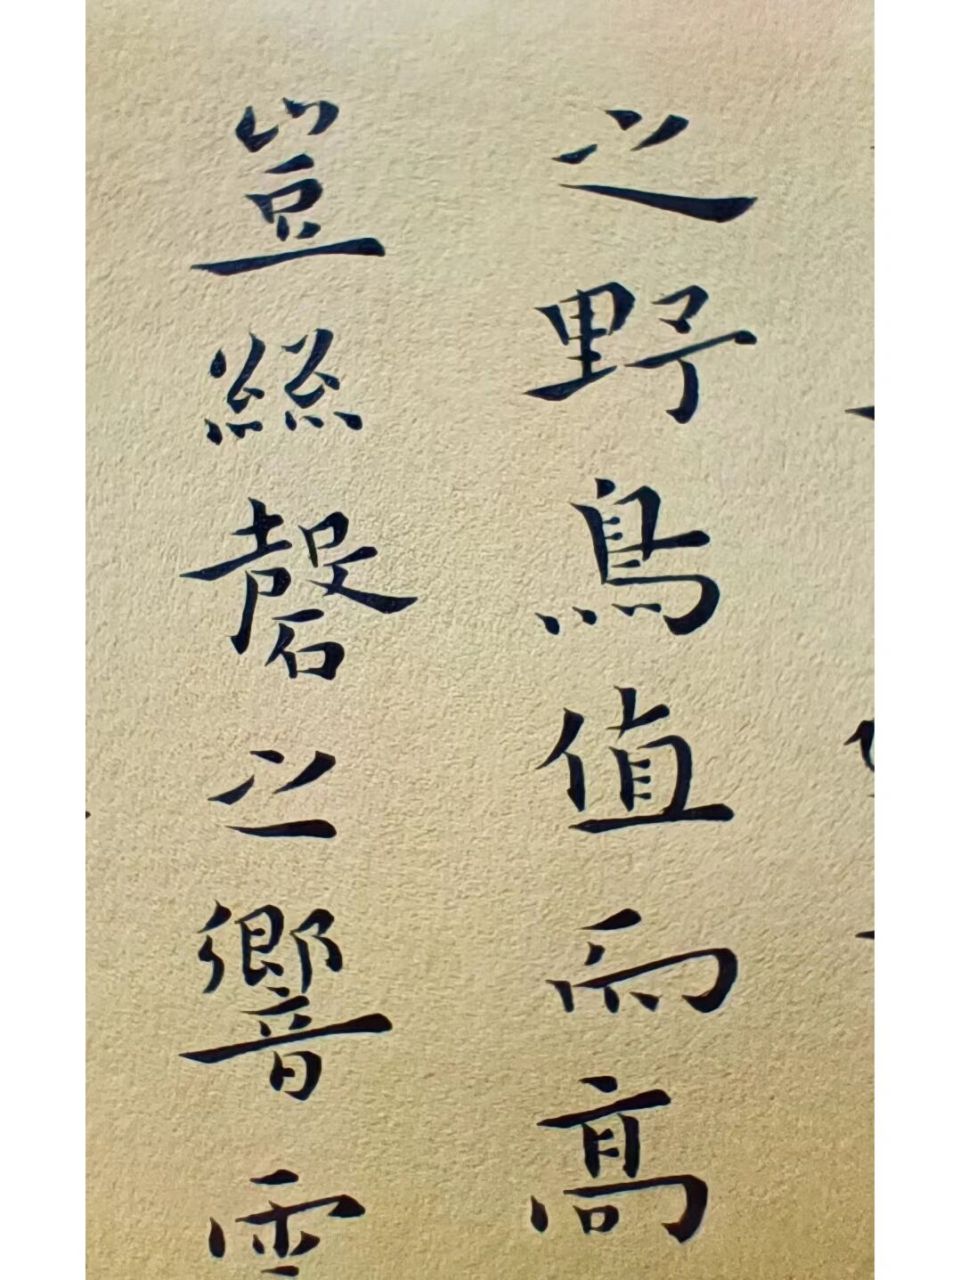 之野鳥值而高
豈絲磬之響雲